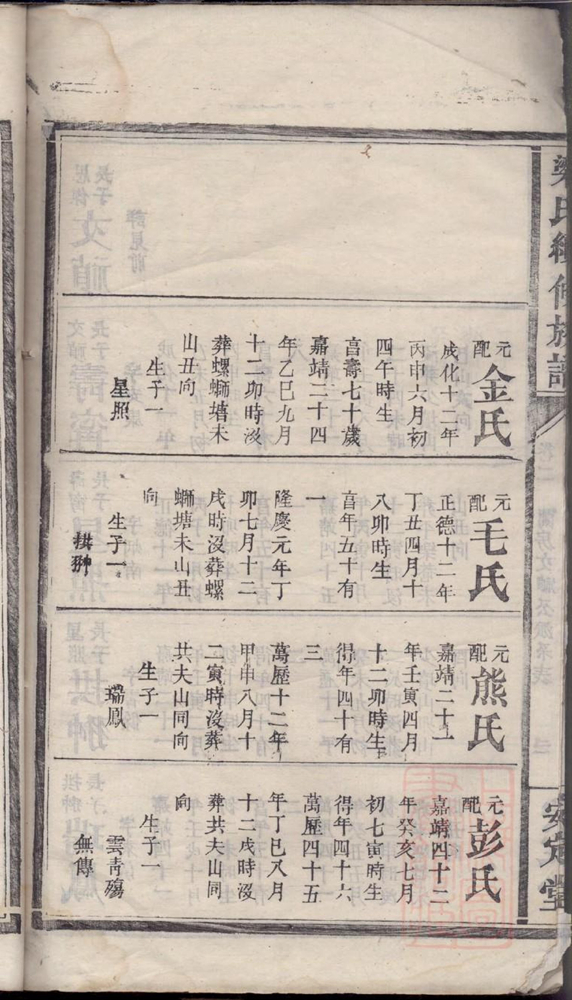 梁氏續修族譜
安定堂
元配金氏
成化十二年
丙申六月初
四午時生
亯壽七十歲
嘉靖二十四
年乙巳九月
十二卯時沒
葬螺螄塘未
山丑向
生子一
星照
元配毛氏
正德十二年
丁丑四月十
八卯時生
亯年五十有
一
隆慶元年丁
卯七月十二
戌時沒葬螺
螄塘未山丑
向
生子一
拱翀
元配熊氏
嘉靖二十一
年壬寅四月
十二卯時生
得年四十有
三
萬歷十二年
甲申八月十
二寅時沒葬
共夫山同向
生子一
瑞鳳
元配彭氏
嘉靖四十二
年癸亥七月
初七寅時生
得年四十六
萬歷四十五
年丁巳八月
十二戌時沒
葬共夫山同
向
生子一
雲青殤
無傳